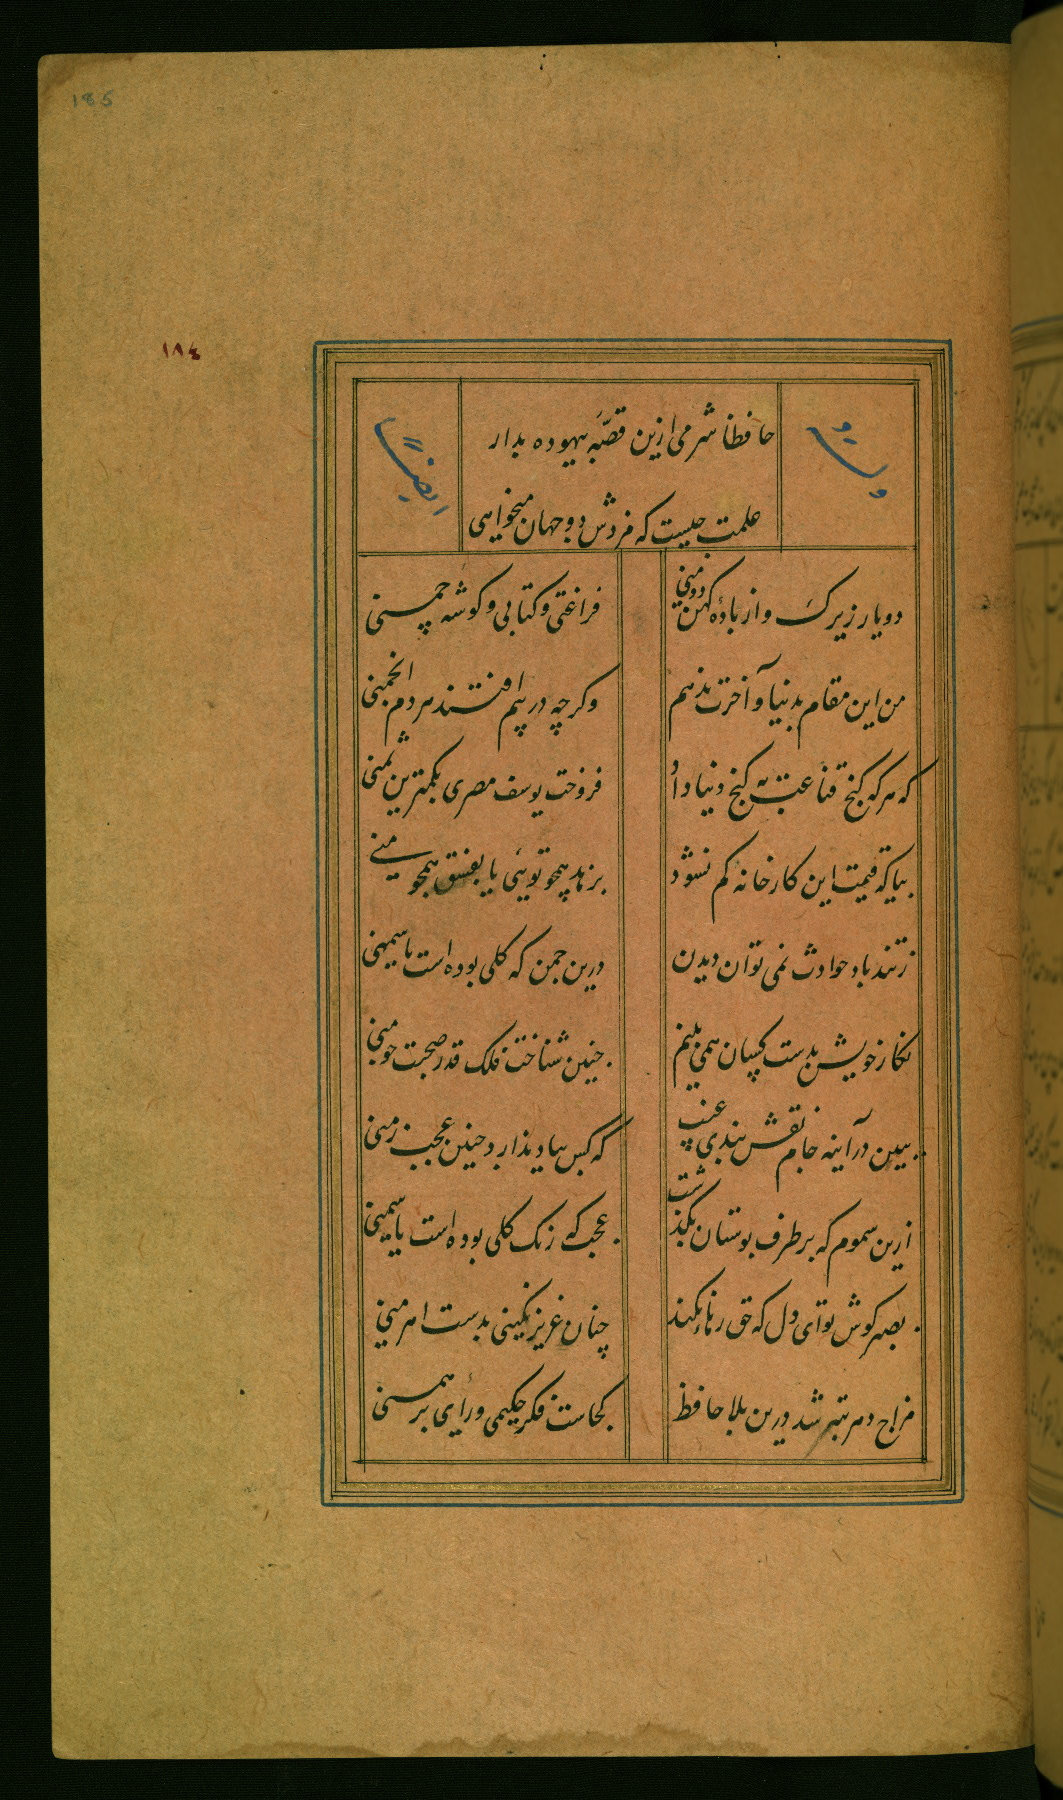 185
١٨٤
حافظا شرمی ازین قصّه بیهوده بدار
علمت چیست که مزدش دو جهان میخواهی
وله
ایضاً
دو یار زیرک و از بادهٔ کهن دو منی
فراغتی و کتابی و کوشه چمنی
من این مقام بدنیا و آخرت ندهم
وکرچه در پیم افتند مردم انجمنی
که هرکه کنج قناعت به کنج دنیا داد
فروخت یوسف مصری بکمترین ثمنی
بیا که قیمت این کارخانه کم نشود
بزهد همچو تویئی یا بفسق همچو منی
زتند باد حوادث نمی توان دیدن
درین چمن که کلی بوده است یاسمینی
نکار خویش بدست کسان همی بینم
چنین شناخت فلک قدر صحبت چو منی
ببین در آینه جام نقش بندی غیب
که کس بیاد ندارد چنین عجب زمنی
ازین سموم که بر طرف بوستان بکذشت
عجب که رنک کلی بوده است یاسمینی
بصبر کوش تو ای دل که حق رها نکند
چنان عزیز نکینی بدست اهرمنی
مزاج دهر تبه شد درین بلا حافظ
کجاست فکر حکیمی و رای برهمنی